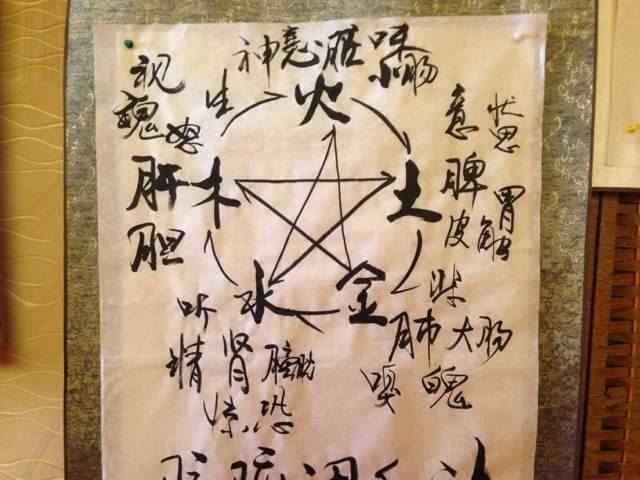 神 心脏 味
小肠
视
生 火
魂 怒
意 忧思
肝 木 土 脾 胃
胆 皮 触
听 水 金
肺 大肠
精 肾 膀胱
嗅 魄
惊恐